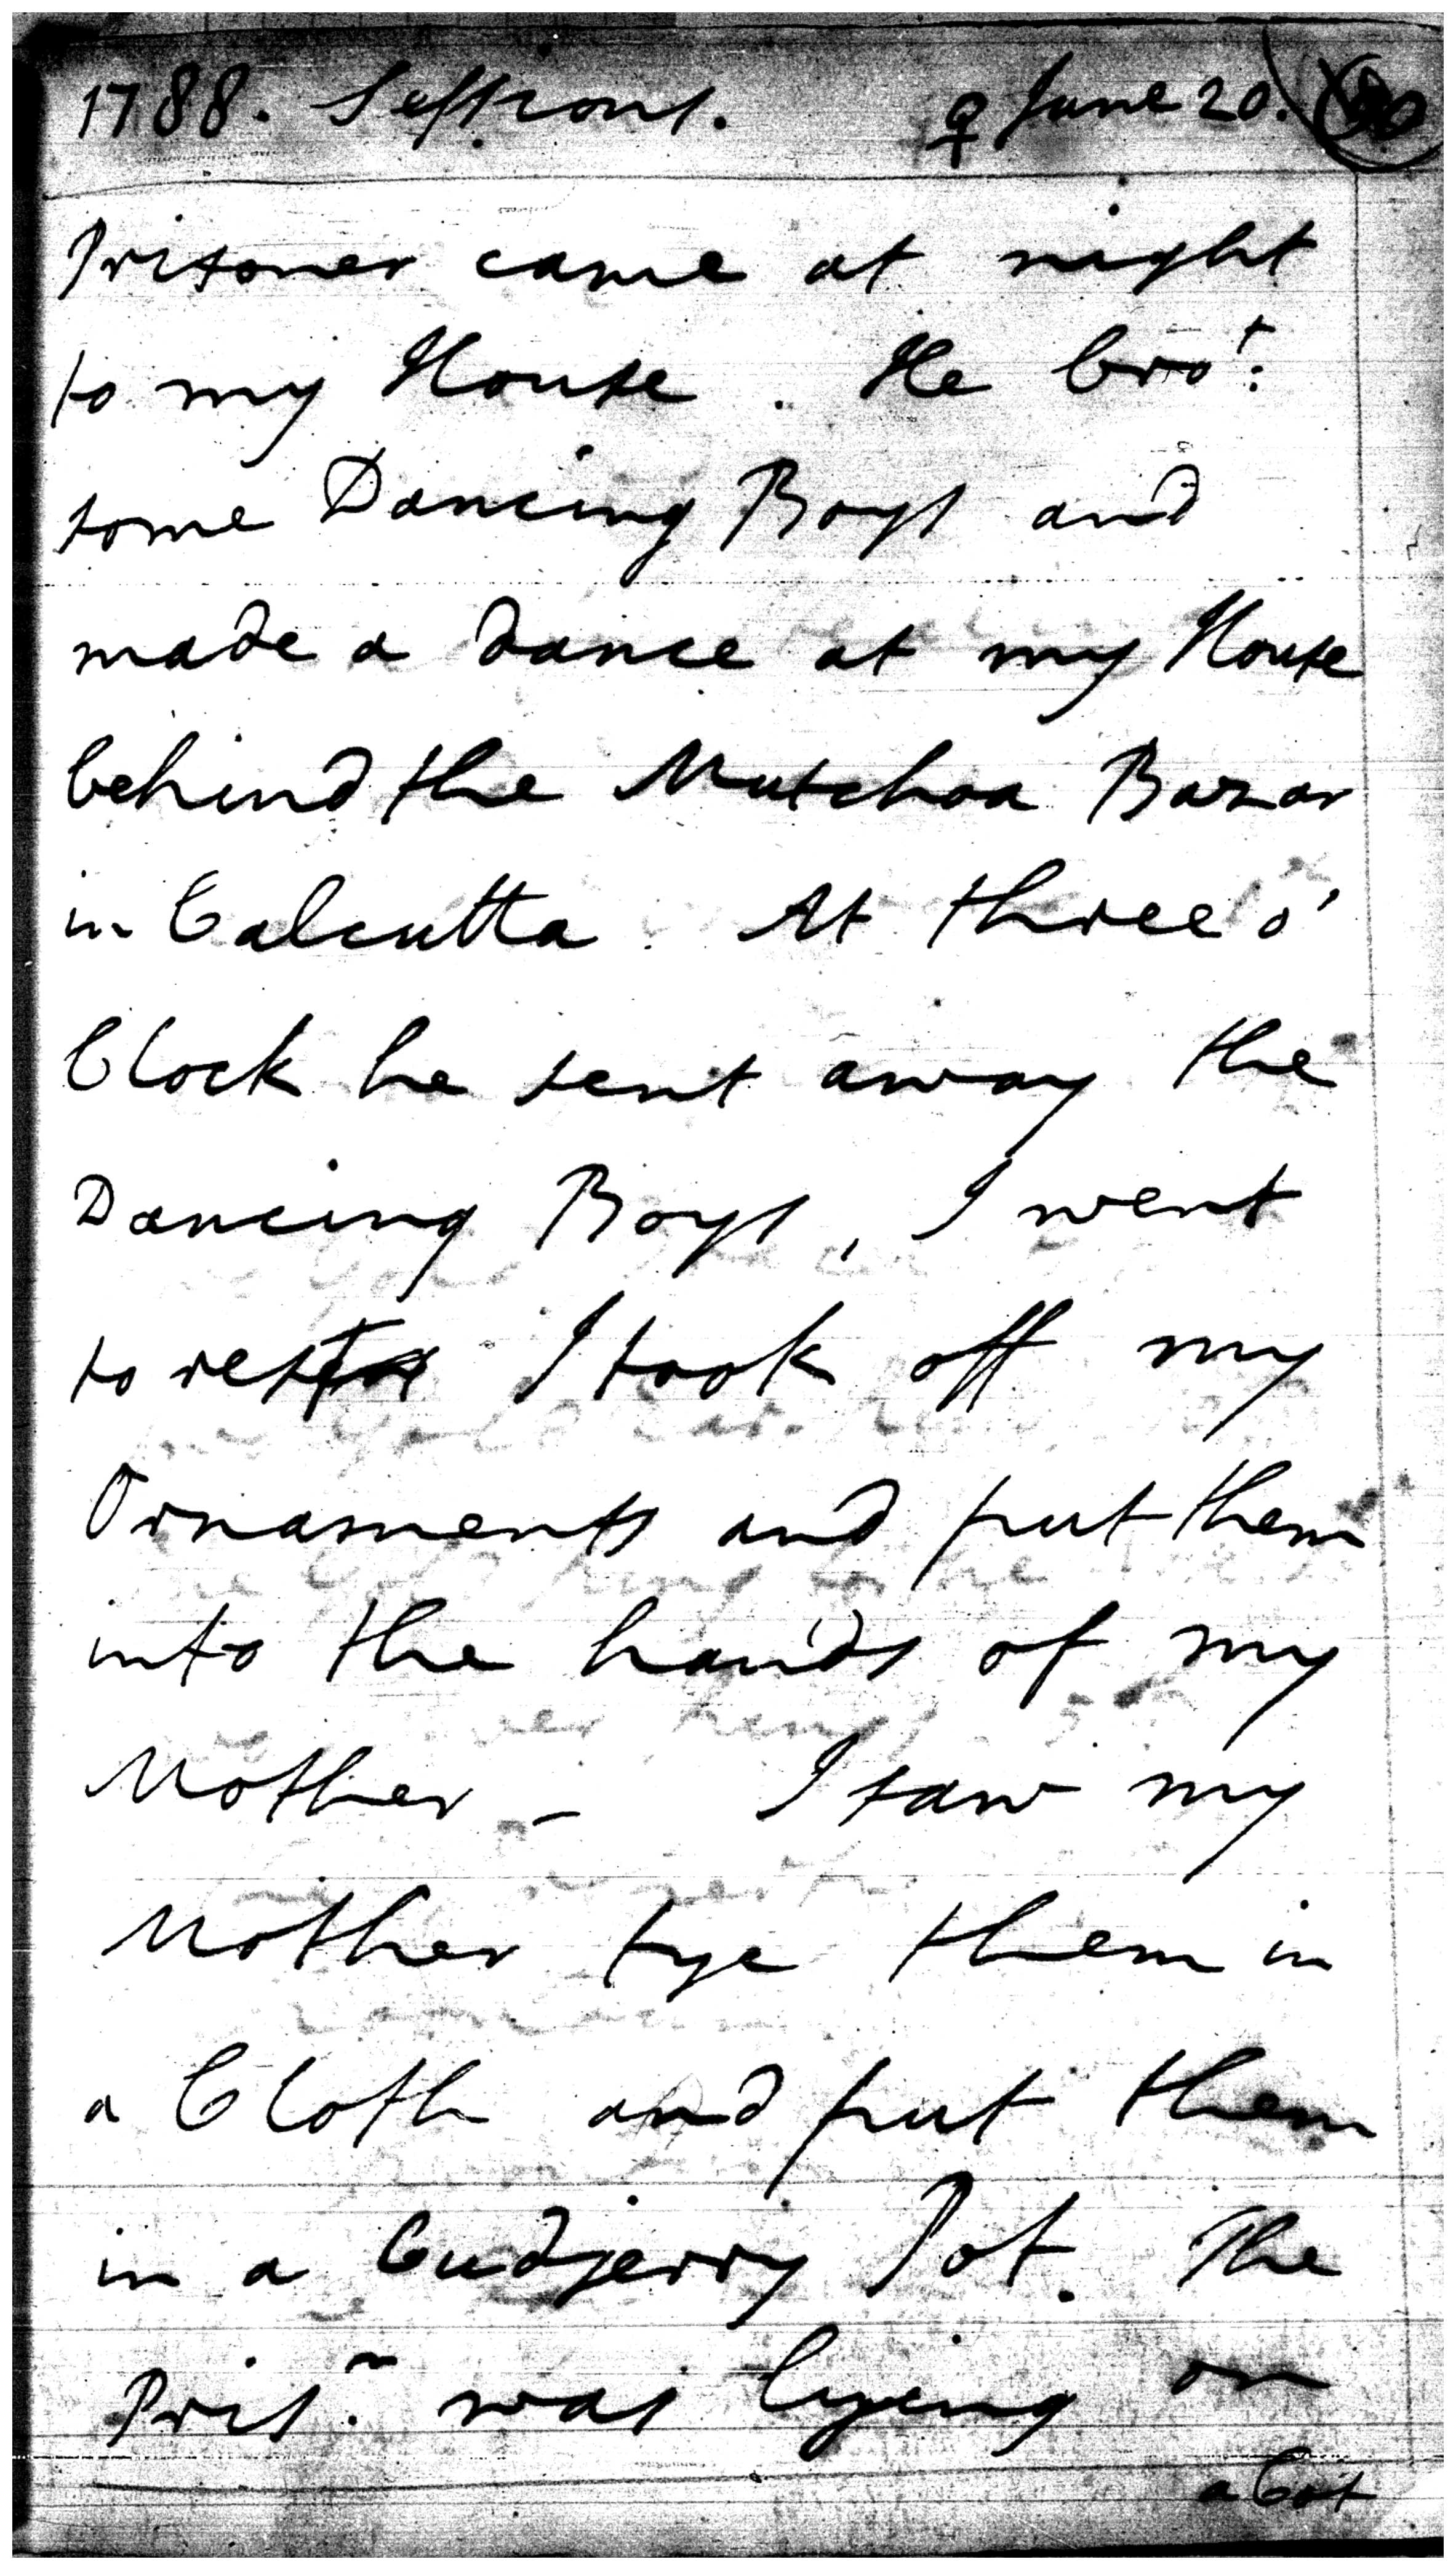 1788. Sessions. ♀ June 20.
Prisoner came at night
to my House. He bro.t
some Dancing Boys and
made a dance at my House
behind the Mutchoa Bazar
in Calcutta. At three o'
Clock he sent away the
Dancing Boys, I went
to rest I took off my
Ornaments and put them
into the hands of my
Mother - I saw my
Mother tye them in
a Cloth and put them
in a Cudjerry Pot. The
Pris.r was lyeing on
a Cot